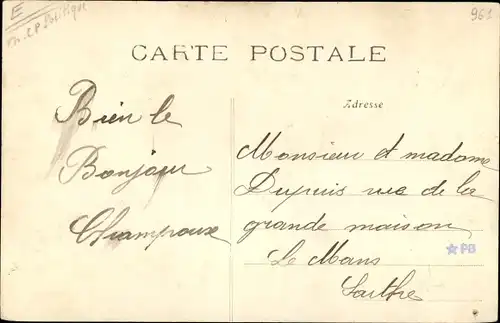 E
961
CARTE POSTALE
Adresse
Bien le
Bonjour
Champoux
Monsieur et madame
Dupuis rue de la
grande maison
Le Mans
Sarthe
PB